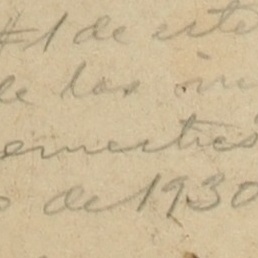 #1 de este
de los
semestres
o de 1930